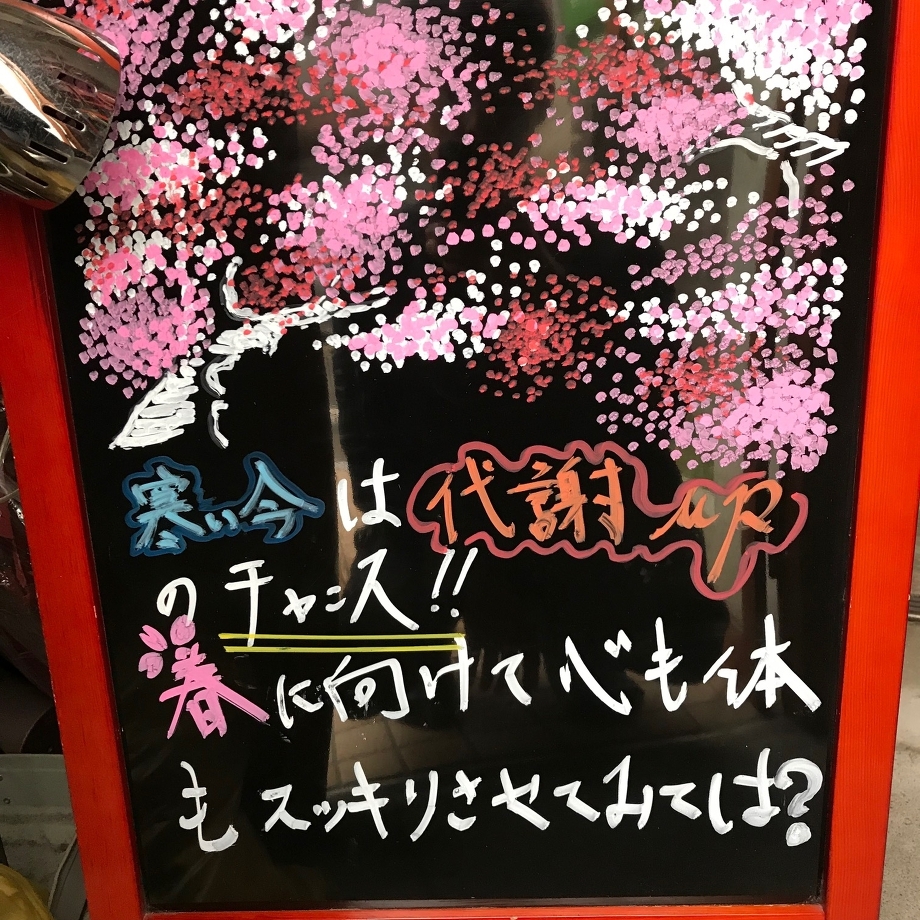 寒い今は代謝up
のチャンス!!
春に向けて心も体
もスッキリさせてみては?